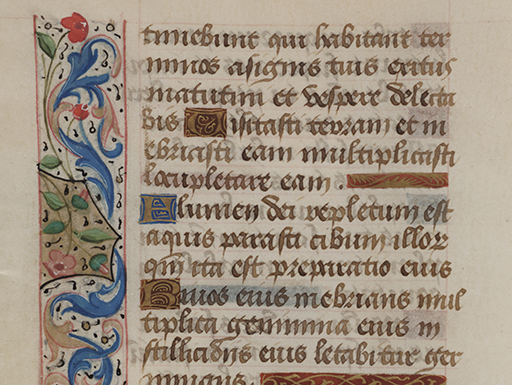 timebunt qui habitant ter
minos a signis tuis exitus
matutini et vespere delecta
bis Visitasti terram et in
ebriasti eam multiplicasti
locupletare eam.
Flumen dei repletum est
aquis parasti cibum illorꝝ
qm̄ ita est preparatio eius
Rivos eius inebrians mul
tiplica genimina eius in
stillicidijs eius letabitur ger
minans